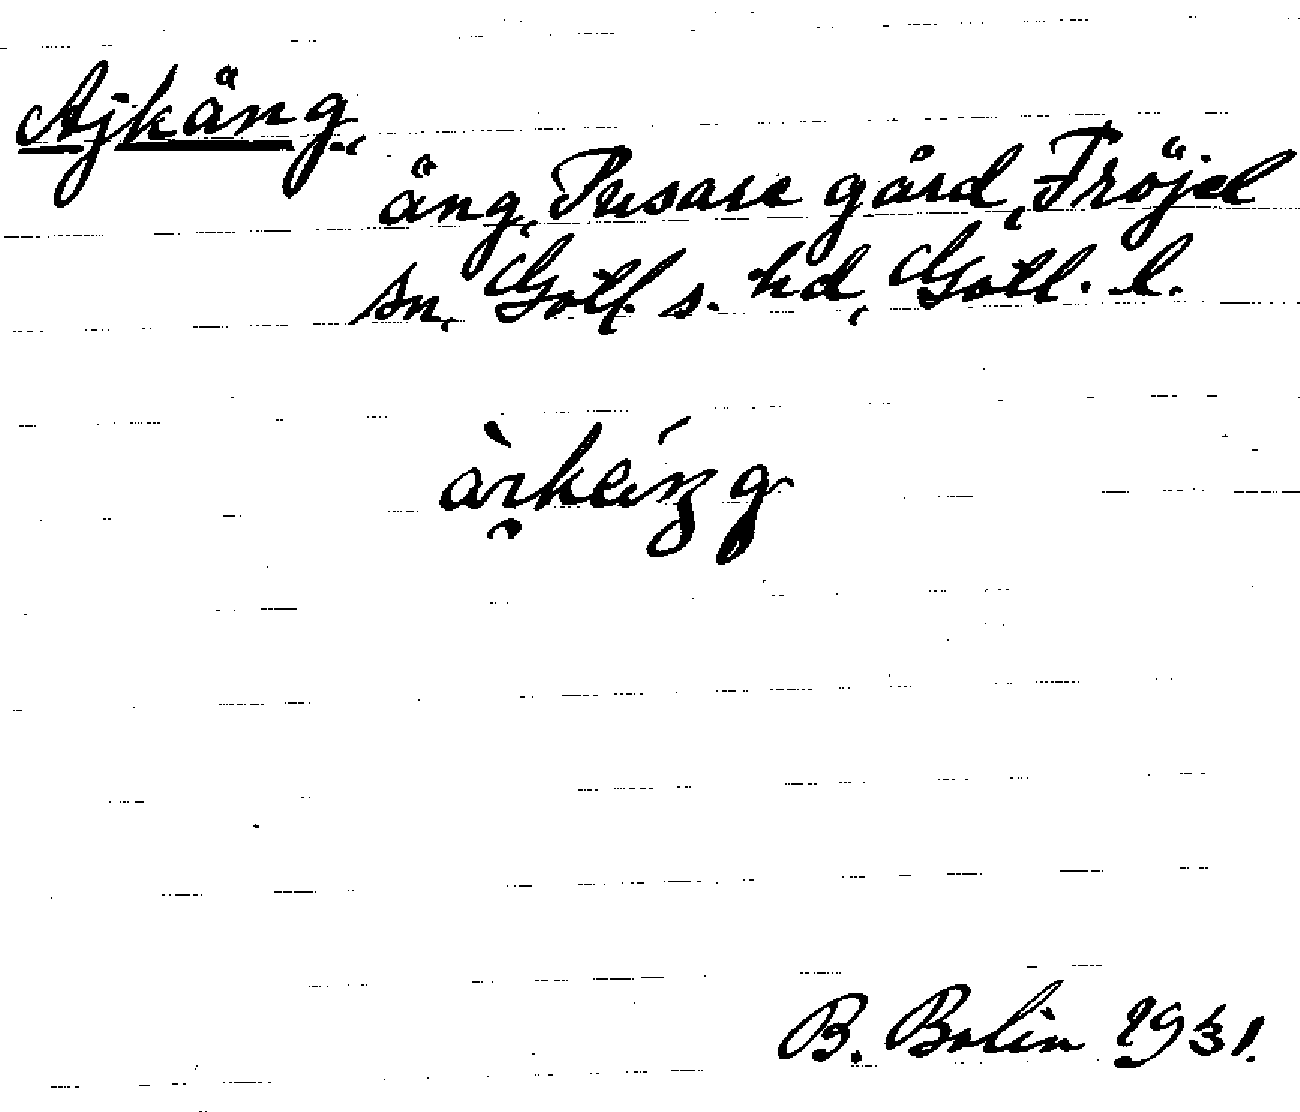 Ajkäng,
äng, Pusare gård, Fröjel
sn, Gotl. s. hd, Gotl. l.
B. Bolin 1931.